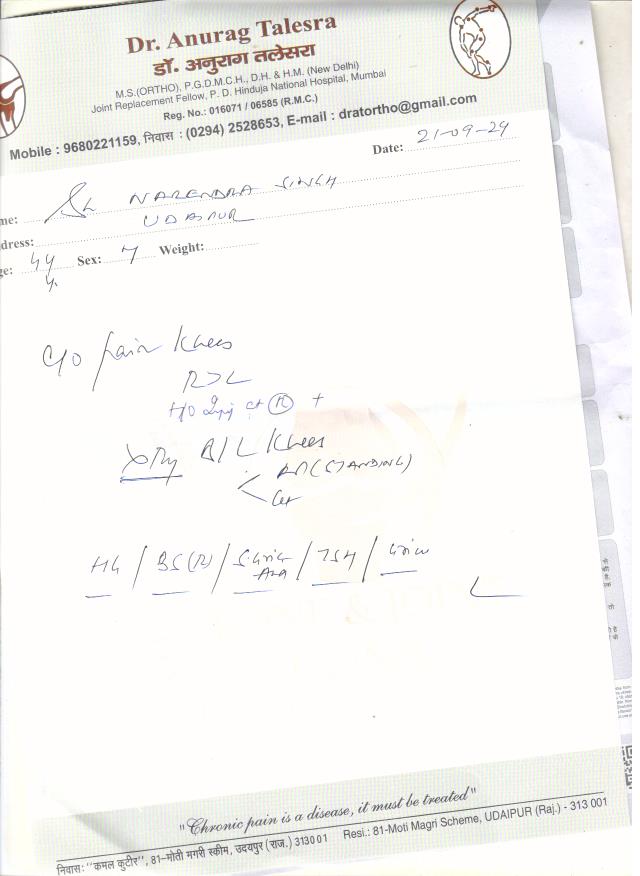 Dr. Anurag Talesra
डॉ. अनुराग तलेसरा
M.S.(ORTHO), P.G.D.M.C.H., D.H. & H.M. (New Delhi)
Joint Replacement Fellow, P. D. Hinduja National Hospital, Mumbai
Reg. No.: 016071 / 06585 (R.M.C.)
Mobile : 9680221159, निवास : (0294) 2528653, E-mail : dratortho@gmail.com
Date: 21-09-24
me: Sh NARENDRA SINGH
dress: UDAIPUR
ge: 44 y. Sex: Weight:
C/O pain Knees
R>L
H/O Inj at R +
X Ray B/L Knees
AP (STANDING)
Lat
HG / BS(R) / S. Uric Acid / TSH / Urine
"Chronic pain is a disease, it must be treated"
निवास: "कमल कुटीर", 81-मोती मगरी स्कीम, उदयपुर (राज.) 313001 Resi.: 81-Moti Magri Scheme, UDAIPUR (Raj.) - 313 001